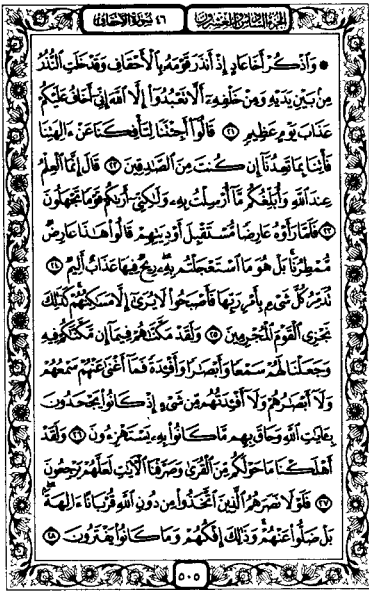 الجزء السادس والعشرون ٤٦ سورة الأحقاف
۞ وَٱذۡكُرۡ أَخَا عَادٍ إِذۡ أَنذَرَ قَوۡمَهُۥ بِٱلۡأَحۡقَافِ وَقَدۡ خَلَتِ ٱلنُّذُرُ
مِنۢ بَيۡنِ يَدَيۡهِ وَمِنۡ خَلۡفِهِۦٓ أَلَّا تَعۡبُدُوٓاْ إِلَّا ٱللَّهَ إِنِّيٓ أَخَافُ عَلَيۡكُمۡ
عَذَابَ يَوۡمٍ عَظِيمٖ ٢١ قَالُوٓاْ أَجِئۡتَنَا لِتَأۡفِكَنَا عَنۡ ءَالِهَتِنَا
فَأۡتِنَا بِمَا تَعِدُنَآ إِن كُنتَ مِنَ ٱلصَّٰدِقِينَ ٢٢ قَالَ إِنَّمَا ٱلۡعِلۡمُ
عِندَ ٱللَّهِ وَأُبَلِّغُكُم مَّآ أُرۡسِلۡتُ بِهِۦ وَلَٰكِنِّيٓ أَرَىٰكُمۡ قَوۡمٗا تَجۡهَلُونَ
٢٣ فَلَمَّا رَأَوۡهُ عَارِضٗا مُّسۡتَقۡبِلَ أَوۡدِيَتِهِمۡ قَالُواْ هَٰذَا عَارِضٞ
مُّمۡطِرُنَاۚ بَلۡ هُوَ مَا ٱسۡتَعۡجَلۡتُم بِهِۦۖ رِيحٞ فِيهَا عَذَابٌ أَلِيمٞ ٢٤
تُدَمِّرُ كُلَّ شَيۡءِۭ بِأَمۡرِ رَبِّهَا فَأَصۡبَحُواْ لَا يُرَىٰٓ إِلَّا مَسَٰكِنُهُمۡۚ كَذَٰلِكَ
نَجۡزِي ٱلۡقَوۡمَ ٱلۡمُجۡرِمِينَ ٢٥ وَلَقَدۡ مَكَّنَّٰهُمۡ فِيمَآ إِن مَّكَّنَّٰكُمۡ فِيهِ
وَجَعَلۡنَا لَهُمۡ سَمۡعٗا وَأَبۡصَٰرٗا وَأَفۡـِٔدَةٗ فَمَآ أَغۡنَىٰ عَنۡهُمۡ سَمۡعُهُمۡ
وَلَآ أَبۡصَٰرُهُمۡ وَلَآ أَفۡـِٔدَتُهُم مِّن شَيۡءٍ إِذۡ كَانُواْ يَجۡحَدُونَ
بِـَٔايَٰتِ ٱللَّهِ وَحَاقَ بِهِم مَّا كَانُواْ بِهِۦ يَسۡتَهۡزِءُونَ ٢٦ وَلَقَدۡ
أَهۡلَكۡنَا مَا حَوۡلَكُم مِّنَ ٱلۡقُرَىٰ وَصَرَّفۡنَا ٱلۡأٓيَٰتِ لَعَلَّهُمۡ يَرۡجِعُونَ
٢٧ فَلَوۡلَا نَصَرَهُمُ ٱلَّذِينَ ٱتَّخَذُواْ مِن دُونِ ٱللَّهِ قُرۡبَانًا ءَالِهَةَۢۖ
بَلۡ ضَلُّواْ عَنۡهُمۡۚ وَذَٰلِكَ إِفۡكُهُمۡ وَمَا كَانُواْ يَفۡتَرُونَ ٢٨
٥٠٥